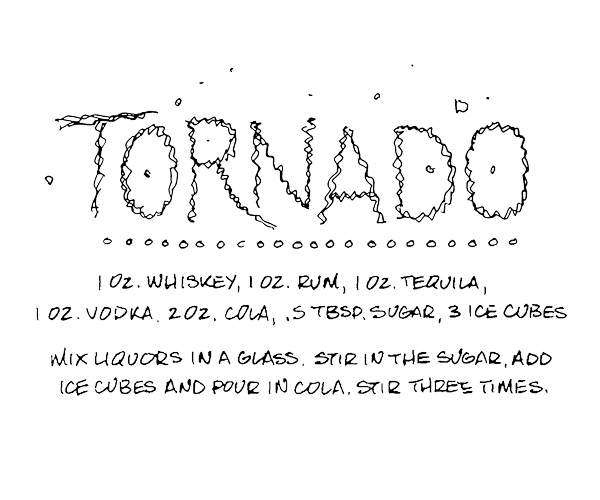 TORNADO
1 OZ. WHISKEY, 1 OZ. RUM, 1 OZ. TEQUILA,
1 OZ. VODKA. 2 OZ. COLA, .5 TBSP. SUGAR, 3 ICE CUBES
MIX LIQUORS IN A GLASS. STIR IN THE SUGAR, ADD
ICE CUBES AND POUR IN COLA. STIR THREE TIMES.